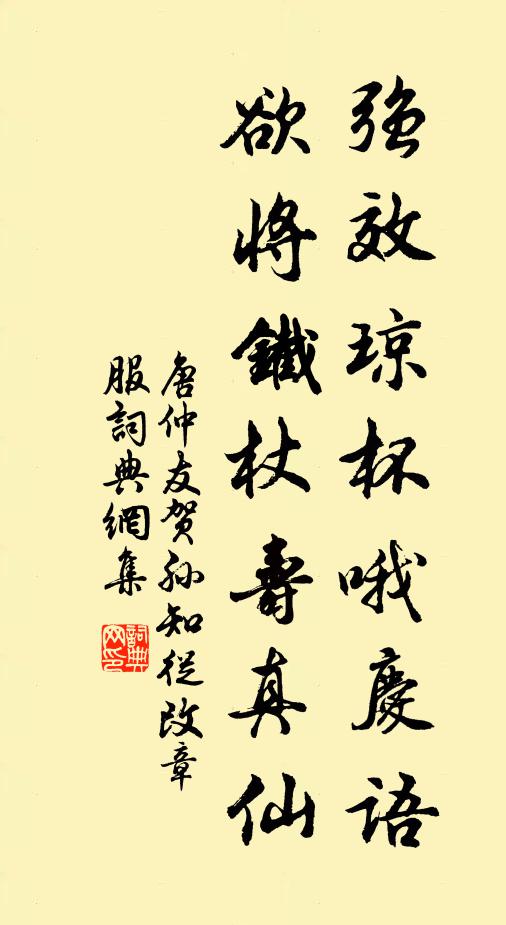 強效琼杯哦慶語
欲將鐵杖壽真仙
唐仲友賀孙知從改章
服詞典網集
詞典网印